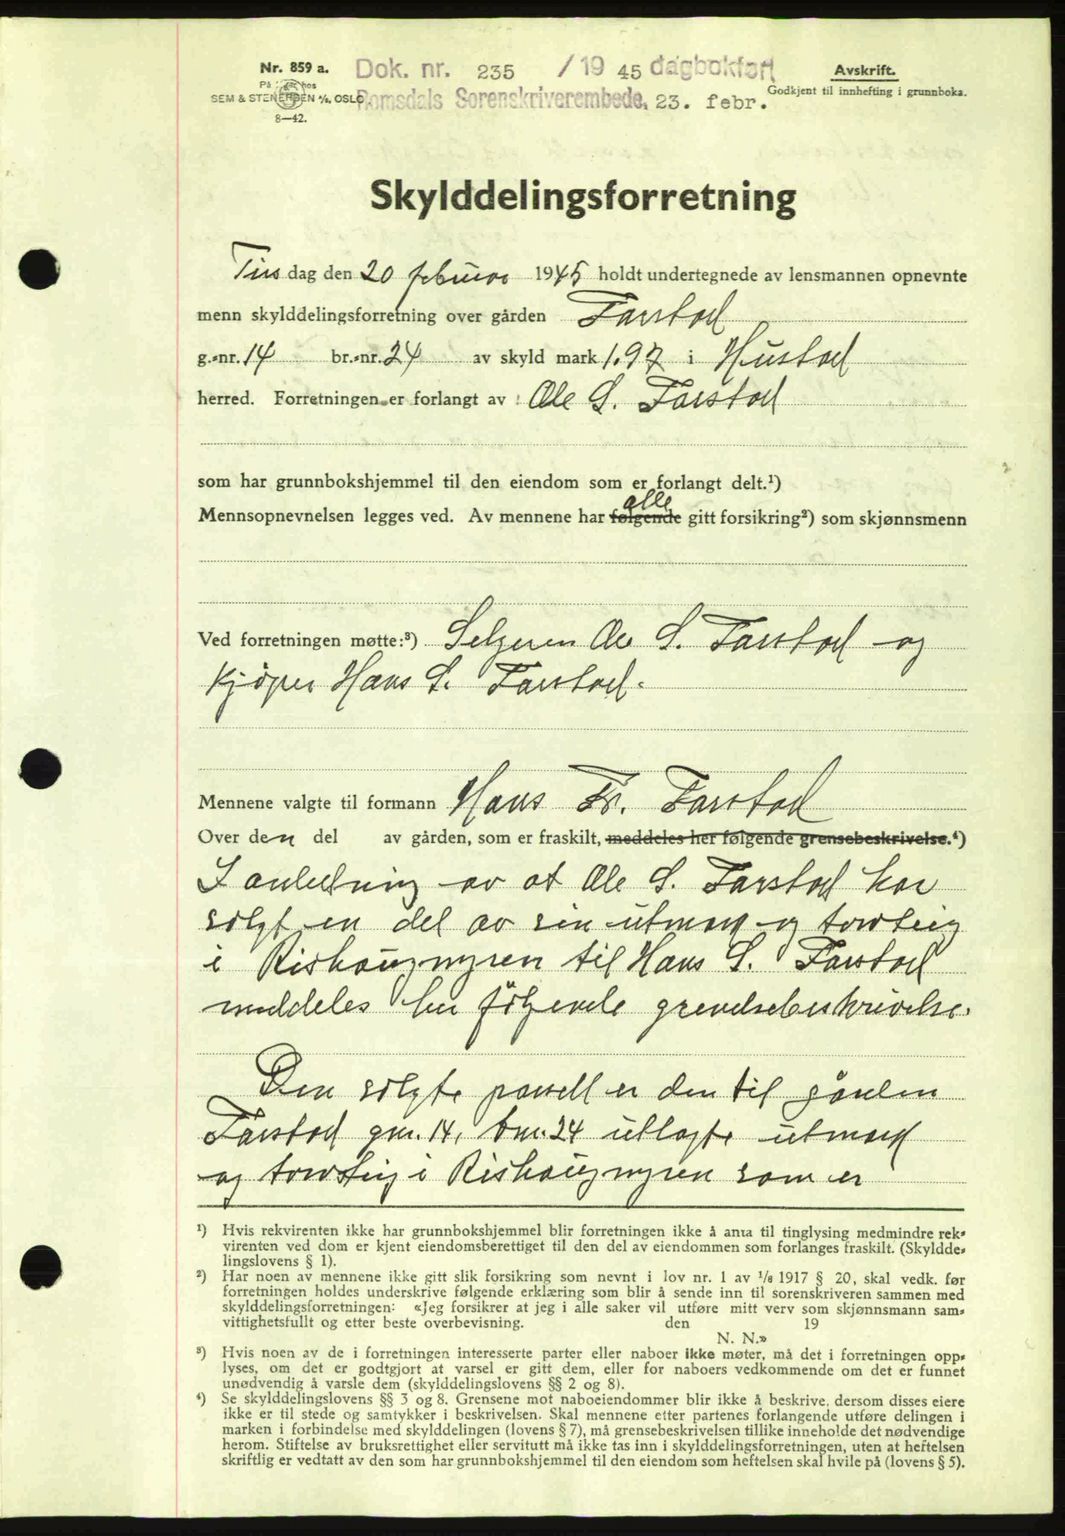 Nr. 859 a.
SEM & STENERSEN A/S, OSLO
8—42.
Dok. nr. 235 /19 45 dagbokført
Romsdals Sorenskriverembede, 23. febr.
Avskrift.
Godkjent til innhefting i grunnboka.
Skylddelingsforretning
Tirsdag den 20 februar 1945 holdt undertegnede av lensmannen opnevnte
menn skylddelingsforretning over gården Farstad
g.-nr. 14 br.-nr. 24 av skyld mark 1.97 i Hustad
herred. Forretningen er forlangt av Ole S. Farstad
som har grunnbokshjemmel til den eiendom som er forlangt delt.¹)
alle
Mennsopnevnelsen legges ved. Av mennene har følgende gitt forsikring²) som skjønnsmenn
Ved forretningen møtte:³) Selgeren Ole S. Farstad og
kjøper Hans S. Farstad.
Mennene valgte til formann Hans Fr. Farstad
Over den del av gården, som er fraskilt, meddeles her følgende grensebeskrivelse.⁴)
I anledning av at Ole S. Farstad har
solgt en del av sin utmark og torvteig
i Rishaugmyren til Hans S. Farstad
meddeles her følgende grendsebeskrivelse.
Den solgte parsell er den til gården
Farstad gnr. 14, bnr. 24 utlagte utmark
og torvteig i Rishaugmyren som er
¹) Hvis rekvirenten ikke har grunnbokshjemmel blir forretningen ikke å anta til tinglysing medmindre rek-
virenten ved dom er kjent eiendomsberettiget til den del av eiendommen som forlanges fraskilt. (Skyldde-
lingslovens § 1).
²) Har noen av mennene ikke gitt slik forsikring som nevnt i lov nr. 1 av ¹/₈ 1917 § 20, skal vedk. før
forretningen holdes underskrive følgende erklæring som blir å sende inn til sorenskriveren sammen med
skylddelingsforretningen: «Jeg forsikrer at jeg i alle saker vil utføre mitt verv som skjønnsmann sam-
vittighetsfullt og etter beste overbevisning. den 19
N. N.»
³) Hvis noen av de i forretningen interesserte parter eller naboer ikke møter, må det i forretningen opp-
lyses, om det er godtgjort at varsel er gitt dem, eller for naboers vedkommende om det er funnet
unødvendig å varsle dem (skylddelingslovens §§ 2 og 8).
⁴) Se skylddelingslovens §§ 3 og 8. Grensene mot naboeiendommer blir ikke å beskrive, dersom disses eiere
ikke er til stede og samtykker i beskrivelsen. Skal mennene etter partenes forlangende utføre delingen i
marken i forbindelse med skylddelingen (lovens § 7), må grensebeskrivelsen tillike inneholde det nødvendige
herom. Stiftelse av bruksrettighet eller servitutt må ikke tas inn i skylddelingsforretningen, uten at heftelsen
skriftlig er vedtatt av den som har grunnbokshjemmel til den eiendom som heftelsen skal hvile på (lovens § 5).